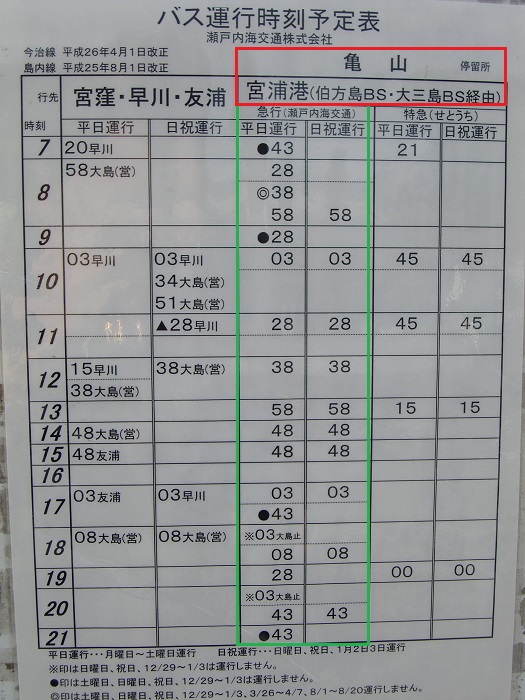 バス運行時刻予定表
瀬戸内海交通株式会社
今治線 平成26年4月1日改正
島内線 平成25年8月1日改正
亀 山 停留所
行先 宮窪・早川・友浦 宮浦港(伯方島BS・大三島BS経由)
急行(瀬戸内海交通) 特急(せとうち)
時刻 平日運行 日祝運行 平日運行 日祝運行 平日運行 日祝運行
7 20早川 ●43 21
58大島(営) 28
8 ◎38
58 58
9 ●28
03早川 03早川 03 03 45 45
10 34大島(営)
51大島(営)
11 ▲28早川 28 28 45 45
12 15早川 38大島(営) 38 38
38大島(営)
13 58 58 15 15
14 48大島(営) 48 48
15 48友浦 48 48
16
17 03友浦 03早川 03 03
●43
18 08大島(営) 08大島(営) ※03大島止
08 08
19 28 00 00
20 ※03大島止
43 43
21 ●43
平日運行・・・月曜日～土曜日運行 日祝運行・・・日曜日、祝日、1月2日3日運行
※印は日曜日、祝日、12/29～1/3は運行しません。
●印は土曜日、日曜日、祝日、12/29～1/3は運行しません。
◎印は日曜日、祝日、12/29～1/3、3/26～4/7、8/1～8/20運行しません。